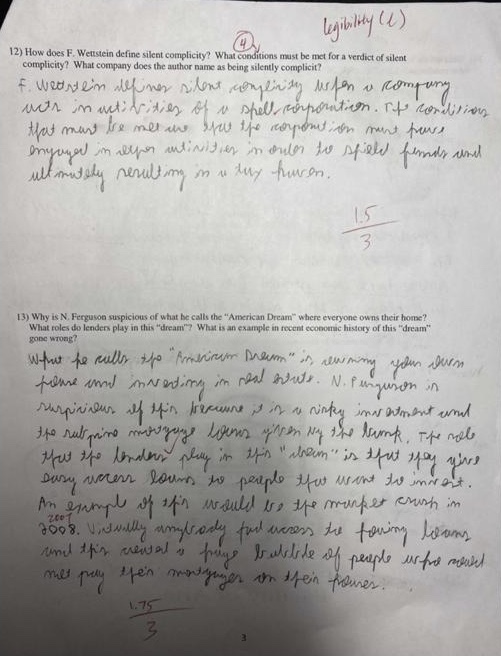 legibility (L)
4
12) How does F. Wettstein define silent complicity? What conditions must be met for a verdict of silent
complicity? What company does the author name as being silently complicit?
F. Wettstein defines silent complicity when a company
acts in activities of a shell corporation. The conditions
that must be met are that the corporation must have
engaged in activities in order to shield funds and
ultimately resulting in a tax haven.
1.5
3
13) Why is N. Ferguson suspicious of what he calls the "American Dream" where everyone owns their home?
What roles do lenders play in this "dream"? What is an example in recent economic history of this "dream"
gone wrong?
What he calls the "American Dream" is owning your own
home and investing in real estate. N. Ferguson is
suspicious of this because it is a risky investment and
the subprime mortgage loans given by the bank. The role
that the lenders play in this "dream" is that they give
easy access loans to people that want to invest.
An example of this would be the market crash in
2007
2008. Virtually anybody had access to housing loans
and this created a huge bubble of people who could
not pay their mortgages on their houses.
1.75
3
3